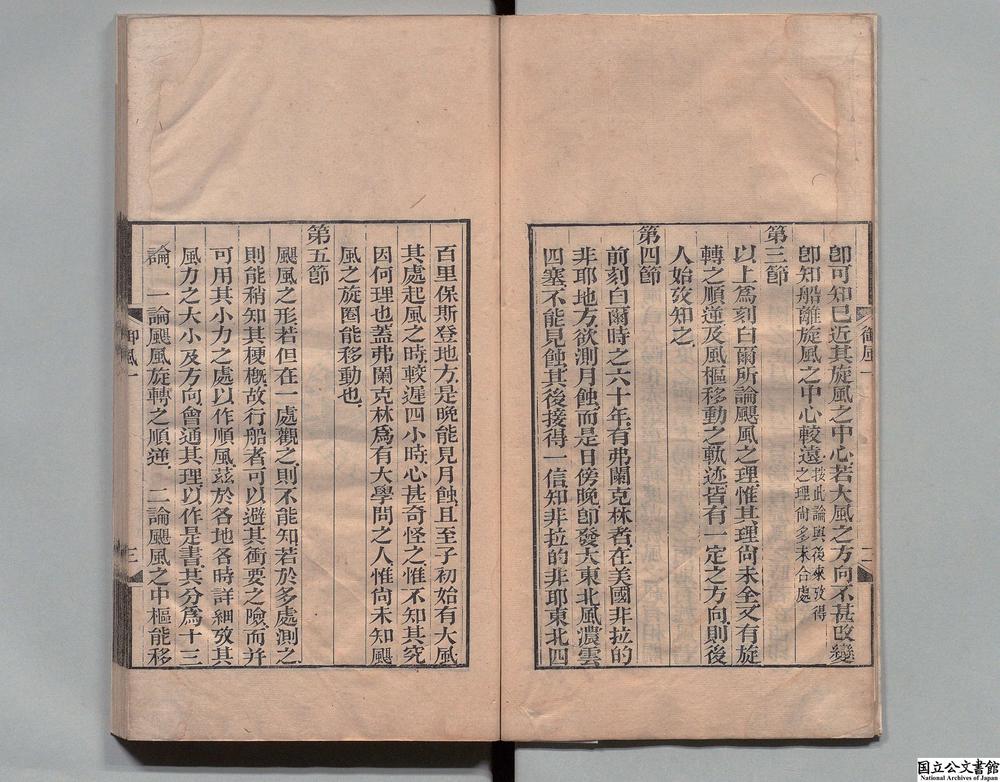 卽可知已近其旋風之中心若大風之方向不甚改變
卽知船離旋風之中心較遠按此論與後來攷得之理尙多未合處
第三節
以上爲刻白爾所論颶風之理惟其理尙未全又有旋
轉之順逆及風樞移動之軌迹皆有一定之方向則後
人始攷知之
第四節
前刻白爾時之六十年有弗蘭克林者在美國非拉的
非耶地方欲測月蝕而是日傍晚卽發大東北風濃雲
四塞不能見蝕其後接得一信知非拉的非耶東北四
御風一
二
百里保斯登地方是晚能見月蝕且至子初始有大風
其處起風之時較遲四小時心甚奇怪之惟不知其究
因何理也蓋弗蘭克林爲有大學問之人惟尙未知颶
風之旋圈能移動也
第五節
颶風之形若但在一處觀之則不能知若於多處測之
則能稍知其梗槪故行船者可以避其衝要之險而并
可用其小力之處以作順風茲於各地各時詳細攷其
風力之大小及方向會通其理以作是書其分爲十三
論 一論颶風旋轉之順逆 二論颶風之中樞能移
御風一
三
国立公文書館
National Archives of Japan